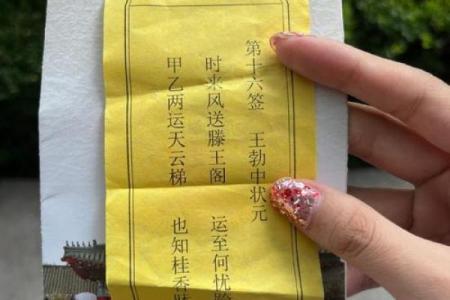 第十六签 王勃中状元
时来风送滕王阁 运至何忧
甲乙两运天云梯 也知桂香